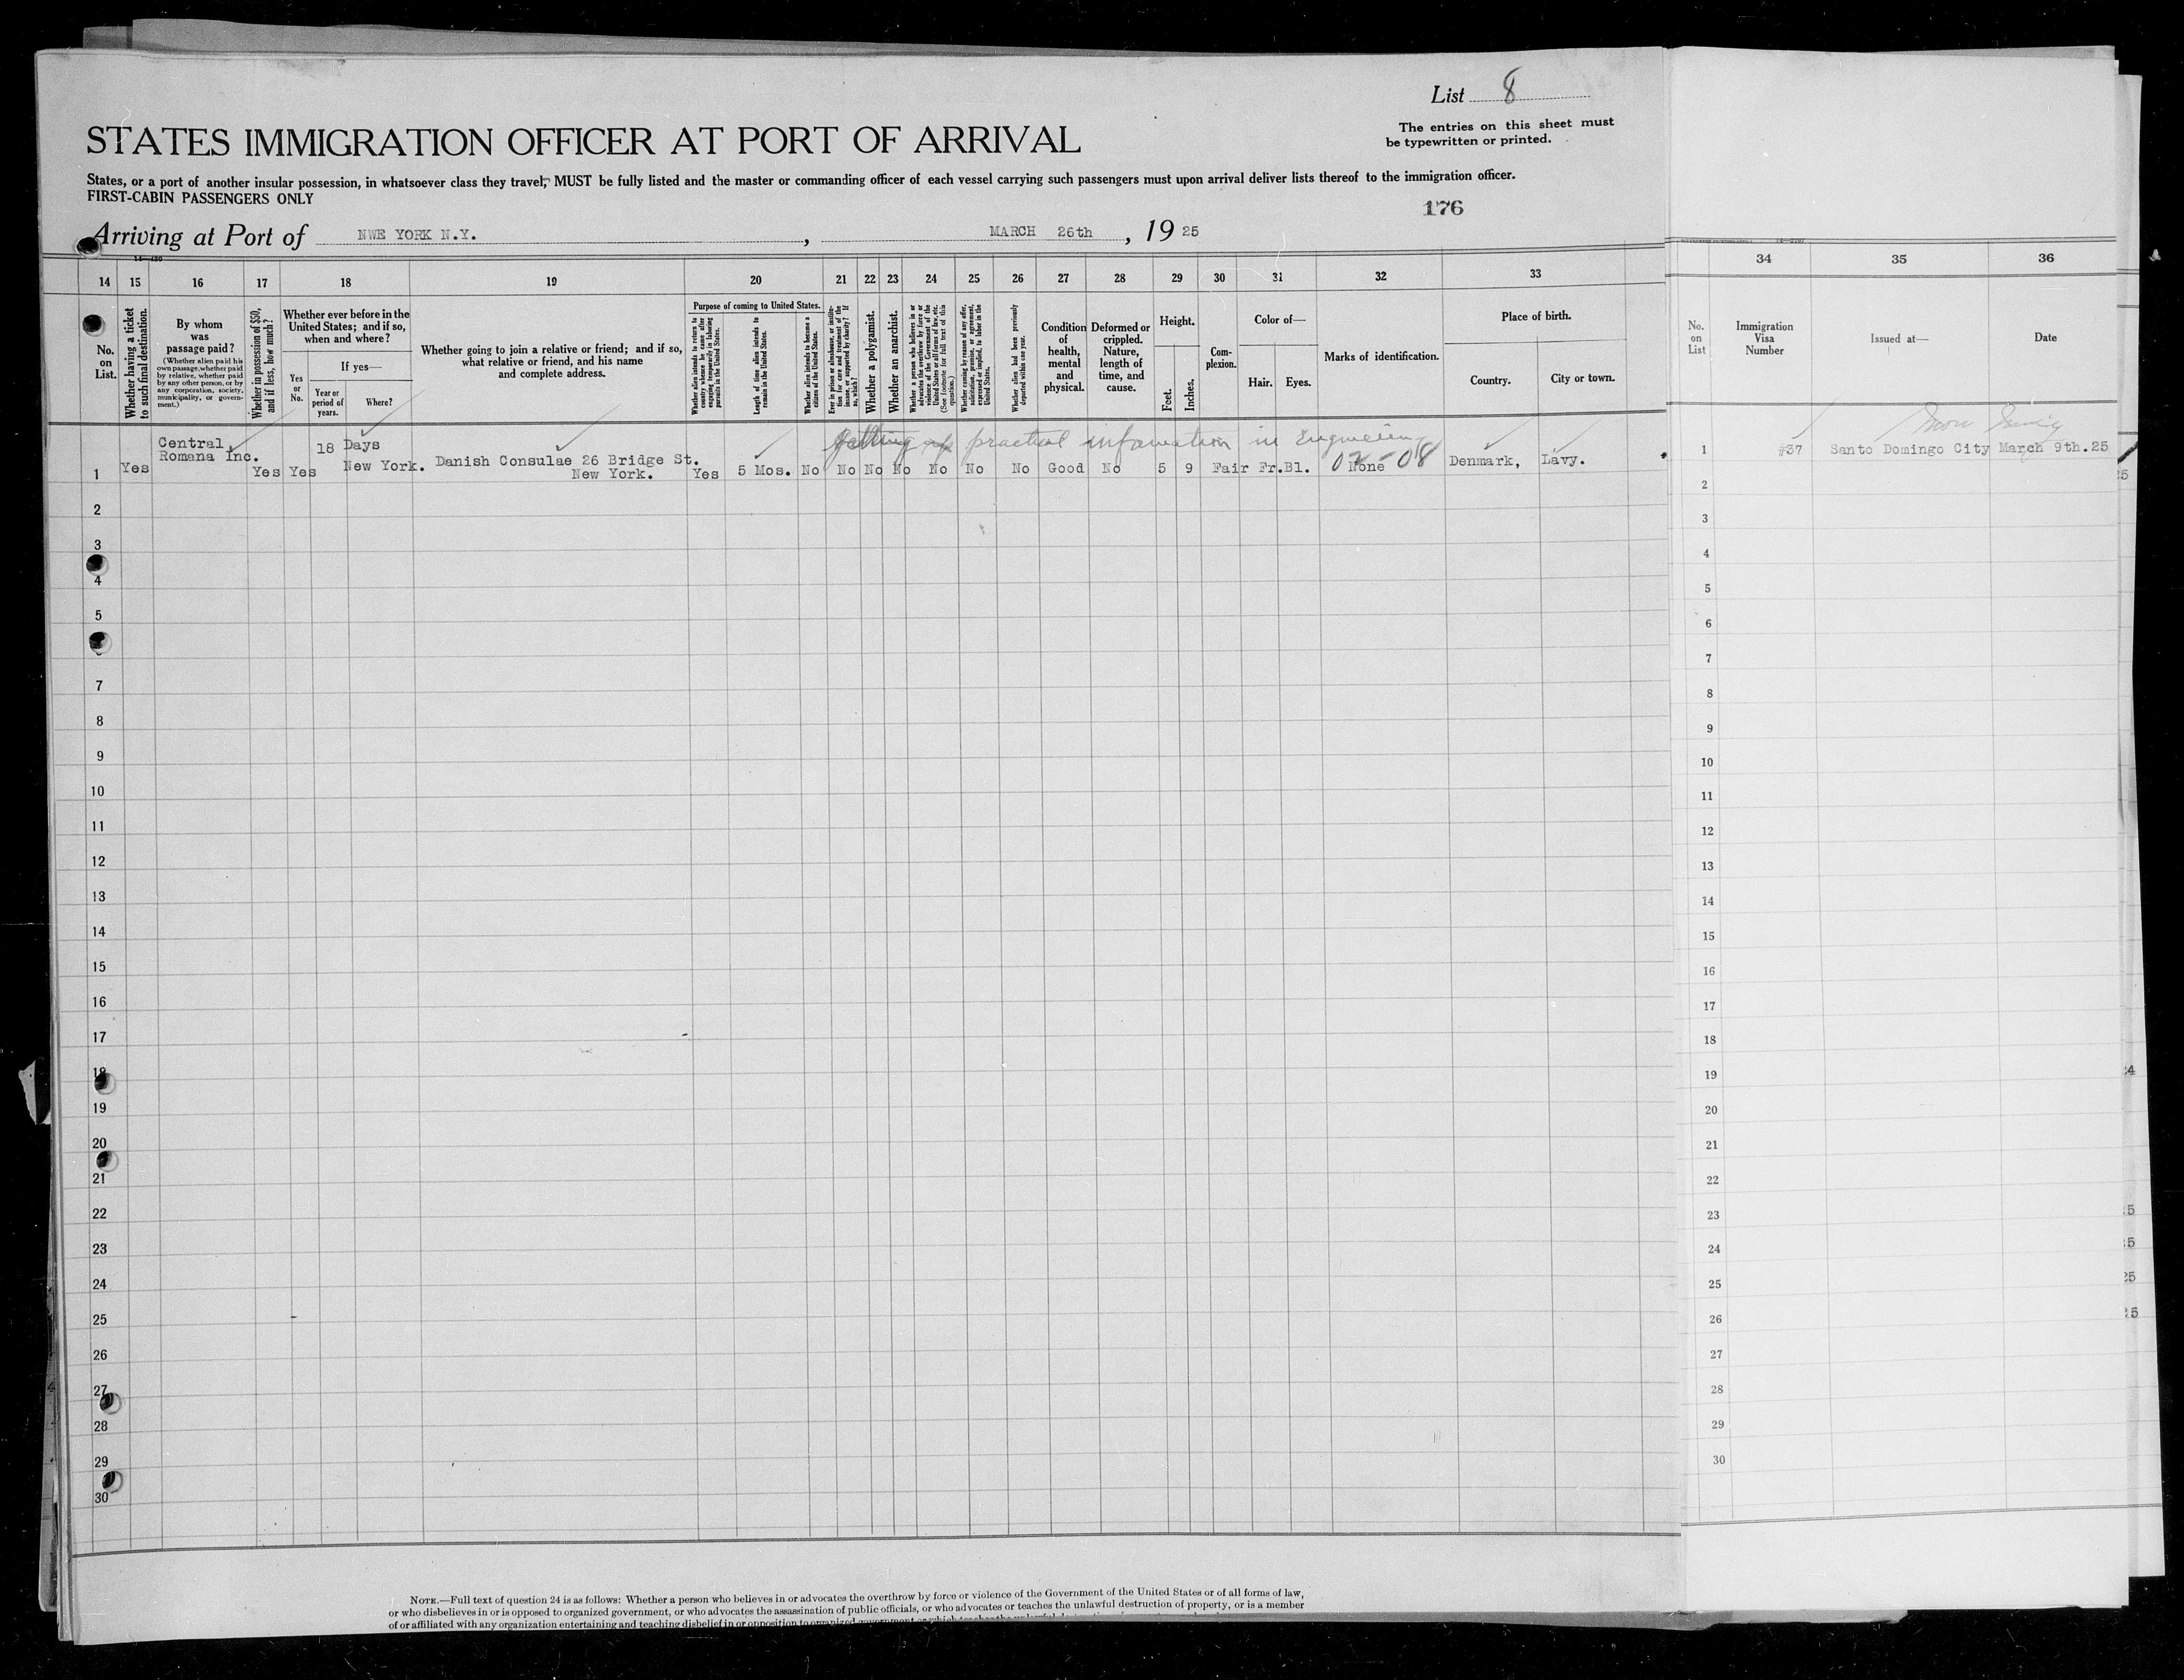 List 8
The entries on this sheet must
be typewritten or printed.
STATES IMMIGRATION OFFICER AT PORT OF ARRIVAL
States, or a port of another insular possession, in whatsoever class they travel, MUST be fully listed and the master or commanding officer of each vessel carrying such passengers must upon arrival deliver lists thereof to the immigration officer.
FIRST-CABIN PASSENGERS ONLY
176
Arriving at Port of NWE YORK N.Y. , MARCH 26th , 19 25
14 15 16 17 18 19 20 21 22 23 24 25 26 27 28 29 30 31 32 33 34 35 36
No.
on
List.
Whether having a ticket
to such final destination.
By whom
was
passage paid?
(Whether alien paid his
own passage, whether paid
by relative, whether paid
by any other person, or by
any corporation, society,
municipality, or govern-
ment.)
Whether in possession of $50,
and if less, how much?
Whether ever before in the
United States; and if so,
when and where?
Yes
or
No.
If yes—
Year or
period of
years.
Where?
Whether going to join a relative or friend; and if so,
what relative or friend, and his name
and complete address.
Purpose of coming to United States.
Whether alien intends to return to
country whence he came after
engaging temporarily in laboring
pursuits in the United States.
Length of time alien intends to
remain in the United States.
Whether alien intends to become a
citizen of the United States.
Ever in prison or almshouse, or institu-
tion for care and treatment of the
insane, or supported by charity? If
so, which?
Whether a polygamist.
Whether an anarchist.
Whether a person who believes in or
advocates the overthrow by force or
violence of the Government of the
United States or all forms of law, etc.
(See footnote for full text of this
question.)
Whether coming by reason of any offer,
solicitation, promise, or agreement,
expressed or implied, to labor in the
United States.
Whether alien had been previously
deported within one year.
Condition
of
health,
mental
and
physical.
Deformed or
crippled.
Nature,
length of
time, and
cause.
Height.
Feet.
Inches.
Com-
plexion.
Color of—
Hair.
Eyes.
Marks of identification.
Place of birth.
Country.
City or town.
No.
on
List
Immigration
Visa
Number
Issued at—
Date
getting up practical information in Engineering
Central
Romana Inc.
18 Days
1 Yes Yes Yes New York. Danish Consulae 26 Bridge St.
New York. Yes 5 Mos. No No No No No No No Good No 5 9 Fair Fr. Bl. None 02-08 Denmark, Lavy.
1 #37 Santo Domingo City March 9th.25
2 2
3 3
4 4
5 5
6
7 7
8 8
9 9
10 10
11 11
12 12
13 13
14 14
15 15
16 16
17 17
18 18
19 19
20 20
21 21
22 22
23 23
24 24
25 25
26 26
27 27
28 28
29 29
30 30
NOTE.—Full text of question 24 is as follows: Whether a person who believes in or advocates the overthrow by force or violence of the Government of the United States or of all forms of law,
or who disbelieves in or is opposed to organized government, or who advocates the assassination of public officials, or who advocates or teaches the unlawful destruction of property, or is a member
of or affiliated with any organization entertaining and teaching disbelief in or opposition to organized government